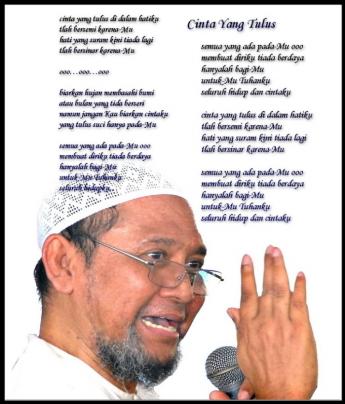 Cinta Yang Tulus
cinta yang tulus di dalam hatiku
tlah bersemi karena-Mu
hati yang suram kini tiada lagi
tlah bersinar karena-Mu
ooo...ooo...ooo
biarkan hujan membasahi bumi
atau bulan yang tida berseri
namun jangan Kau biarkan cintaku
yang tulus suci hanya pada-Mu
semua yang ada pada-Mu ooo
membuat diriku tiada berdaya
hanyalah bagi-Mu
untuk-Mu Tuhanku
seluruh hidupku
semua yang ada pada-Mu ooo
membuat diriku tiada berdaya
hanyalah bagi-Mu
untuk-Mu Tuhanku
seluruh hidup dan cintaku
cinta yang tulus di dalam hatiku
tlah bersemi karena-Mu
hati yang suram kini tiada lagi
tlah bersinar karena-Mu
semua yang ada pada-Mu ooo
membuat diriku tiada berdaya
hanyalah bagi-Mu
untuk-Mu Tuhanku
seluruh hidup dan cintaku